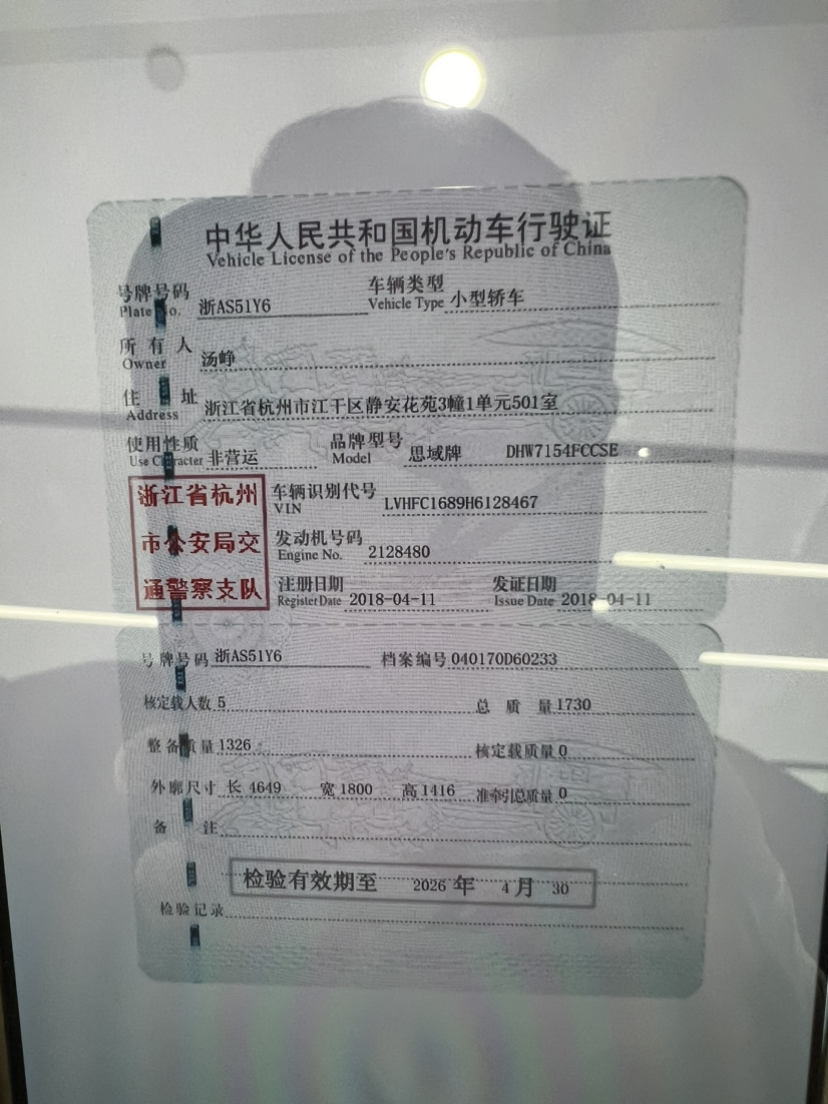 中华人民共和国机动车行驶证
Vehicle License of the People's Republic of China
号牌号码 浙AS51Y6 车辆类型 小型轿车
Plate No. Vehicle Type
所有人 汤峥
Owner
住址 浙江省杭州市江干区静安花苑3幢1单元501室
Address
使用性质 非营运 品牌型号 思域牌 DHW7154FCCSE
Use Character Model
浙江省杭州
市公安局交
通警察支队
车辆识别代号 LVHFC1689H6128467
VIN
发动机号码 2128480
Engine No.
注册日期 2018-04-11 发证日期 2018-04-11
Register Date Issue Date
号牌号码 浙AS51Y6 档案编号 040170D60233
核定载人数 5 总质量 1730
整备质量 1326 核定载质量 0
外廓尺寸 长 4649 宽 1800 高 1416 准牵引总质量 0
备注
检验有效期至 2026 年 4 月 30
检验记录